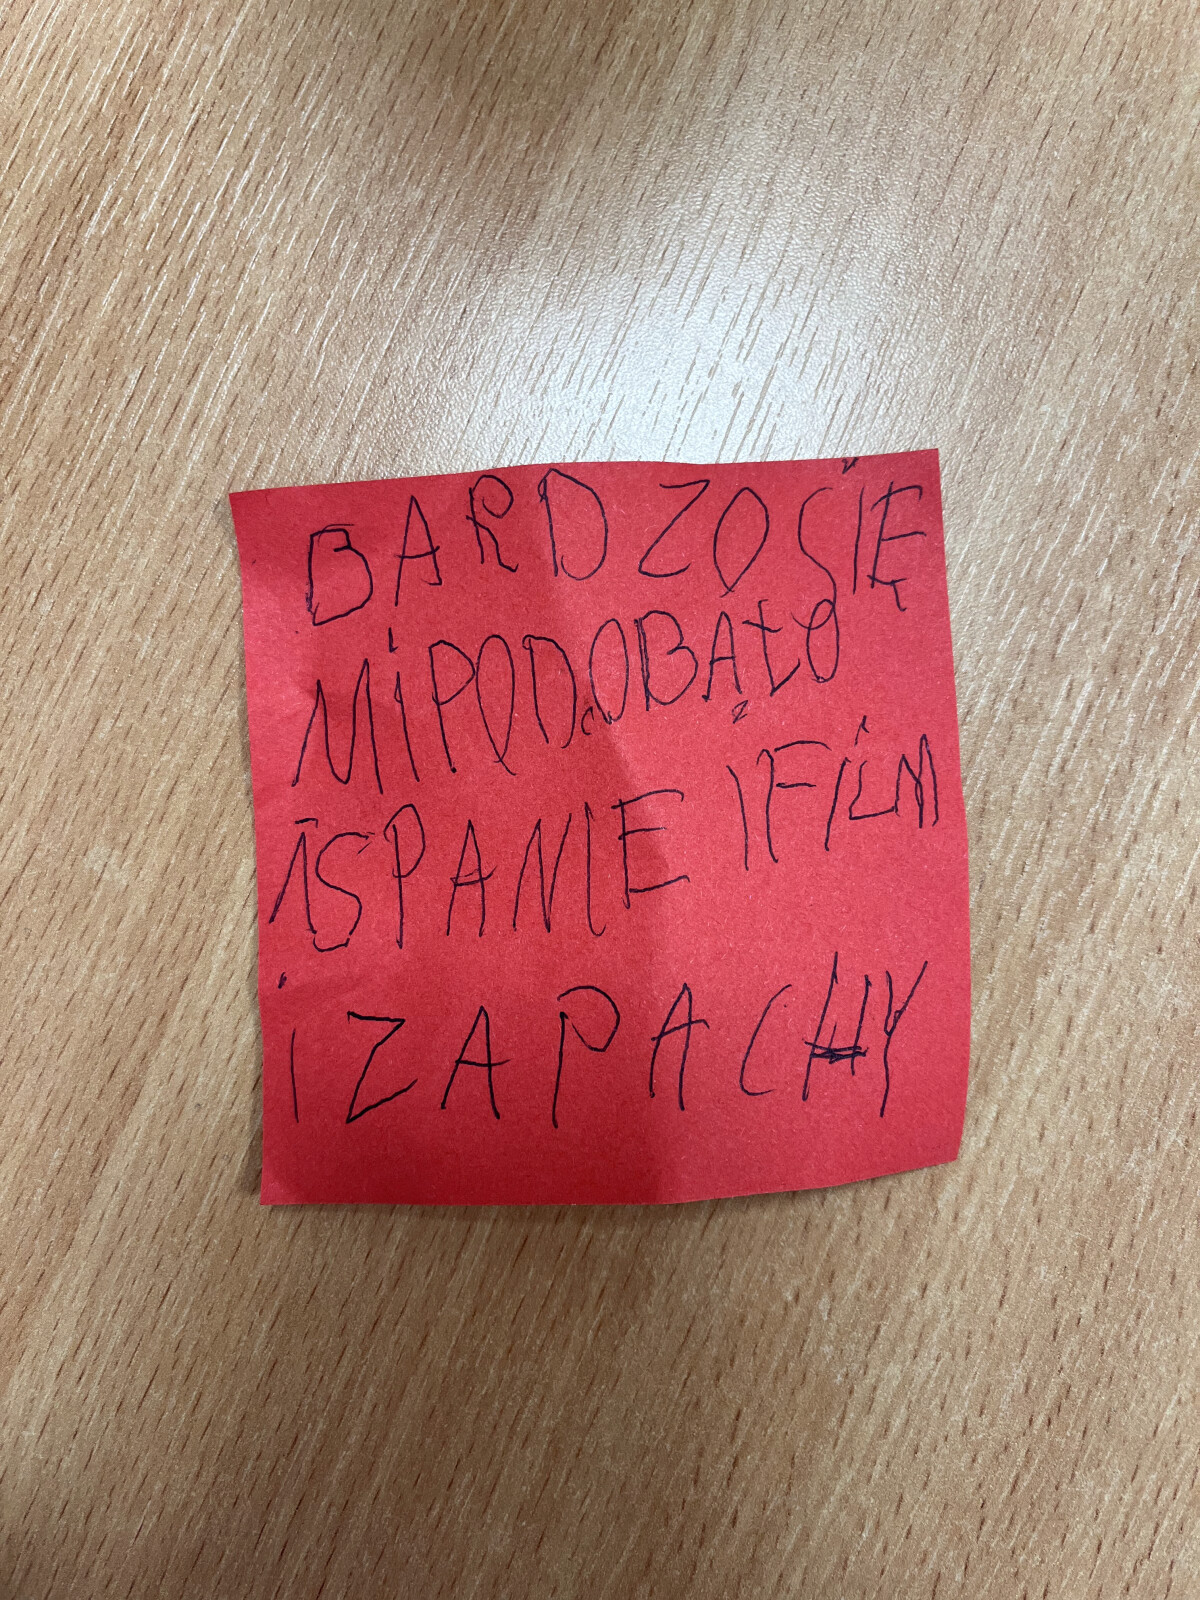 BARDZO SIĘ
MI PODOBAŁO
ISPANIE I FILM
I ZAPACHY